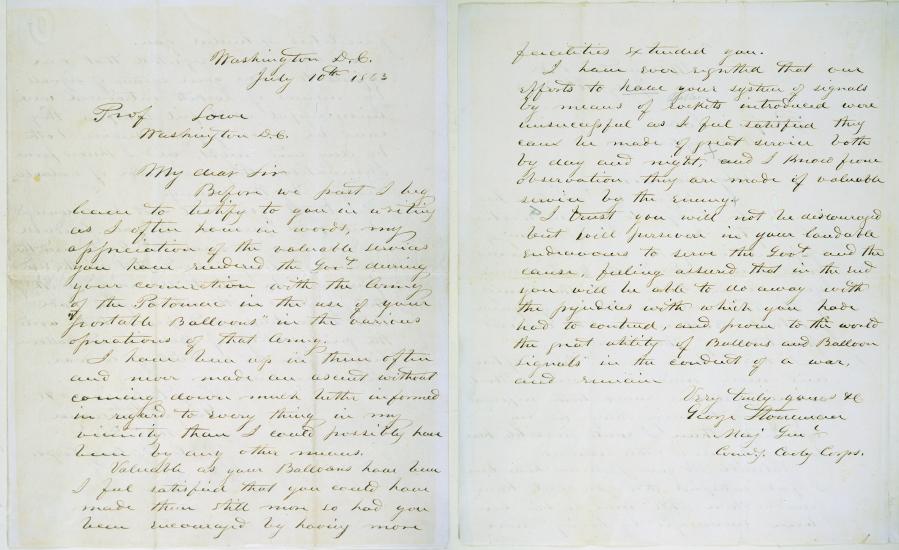 Washington D.C.
July 10th 1863
Prof Lowe
Washington D.C.
My dear Sir
Before we part I beg
leave to testify to you in writing
as I often have in words, my
appreciation of the valuable services
you have rendered the Govt. during
your connection with the Army
of the Potomac in the use of your
"portable Balloons" in the various
operations of that Army.
I have been up in them often
and never made an ascent without
coming down much better informed
in regard to every thing in my
vicinity than I could possibly have
been by any other means.
Valuable as your Balloons have been
I feel satisfied that you could have
made them still more so had you
been encouraged by having more
facilities extended you.
I have ever regretted that our
efforts to have your system of signals
by means of rockets introduced were
unsuccessful as I feel satisfied they
can be made of great service both
by day and night, and I know from
observation they are made of valuable
service by the enemy.
I trust you will not be discouraged
but will persevere in your laudable
endeavours to serve the Govt. and the
cause, feeling assured that in the end
you will be able to do away with
the prejudices with which you have
had to contend, and prove to the world
the great utility of Balloons and Balloon
signals in the conduct of a war,
and remain
Very truly yours &c
George Stoneman
Maj Genl
Comdg. Cavly Corps.